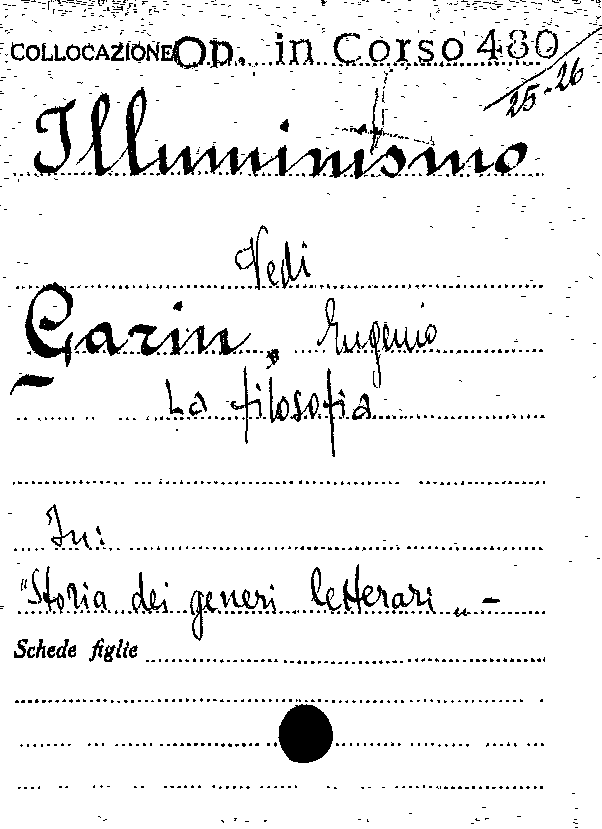 COLLOCAZIONE Op. in Corso 480
25-26
Illuminismo
Vedi
Garin, Eugenio
La filosofia
In:
"Storia dei generi letterari„ -
Schede figlie